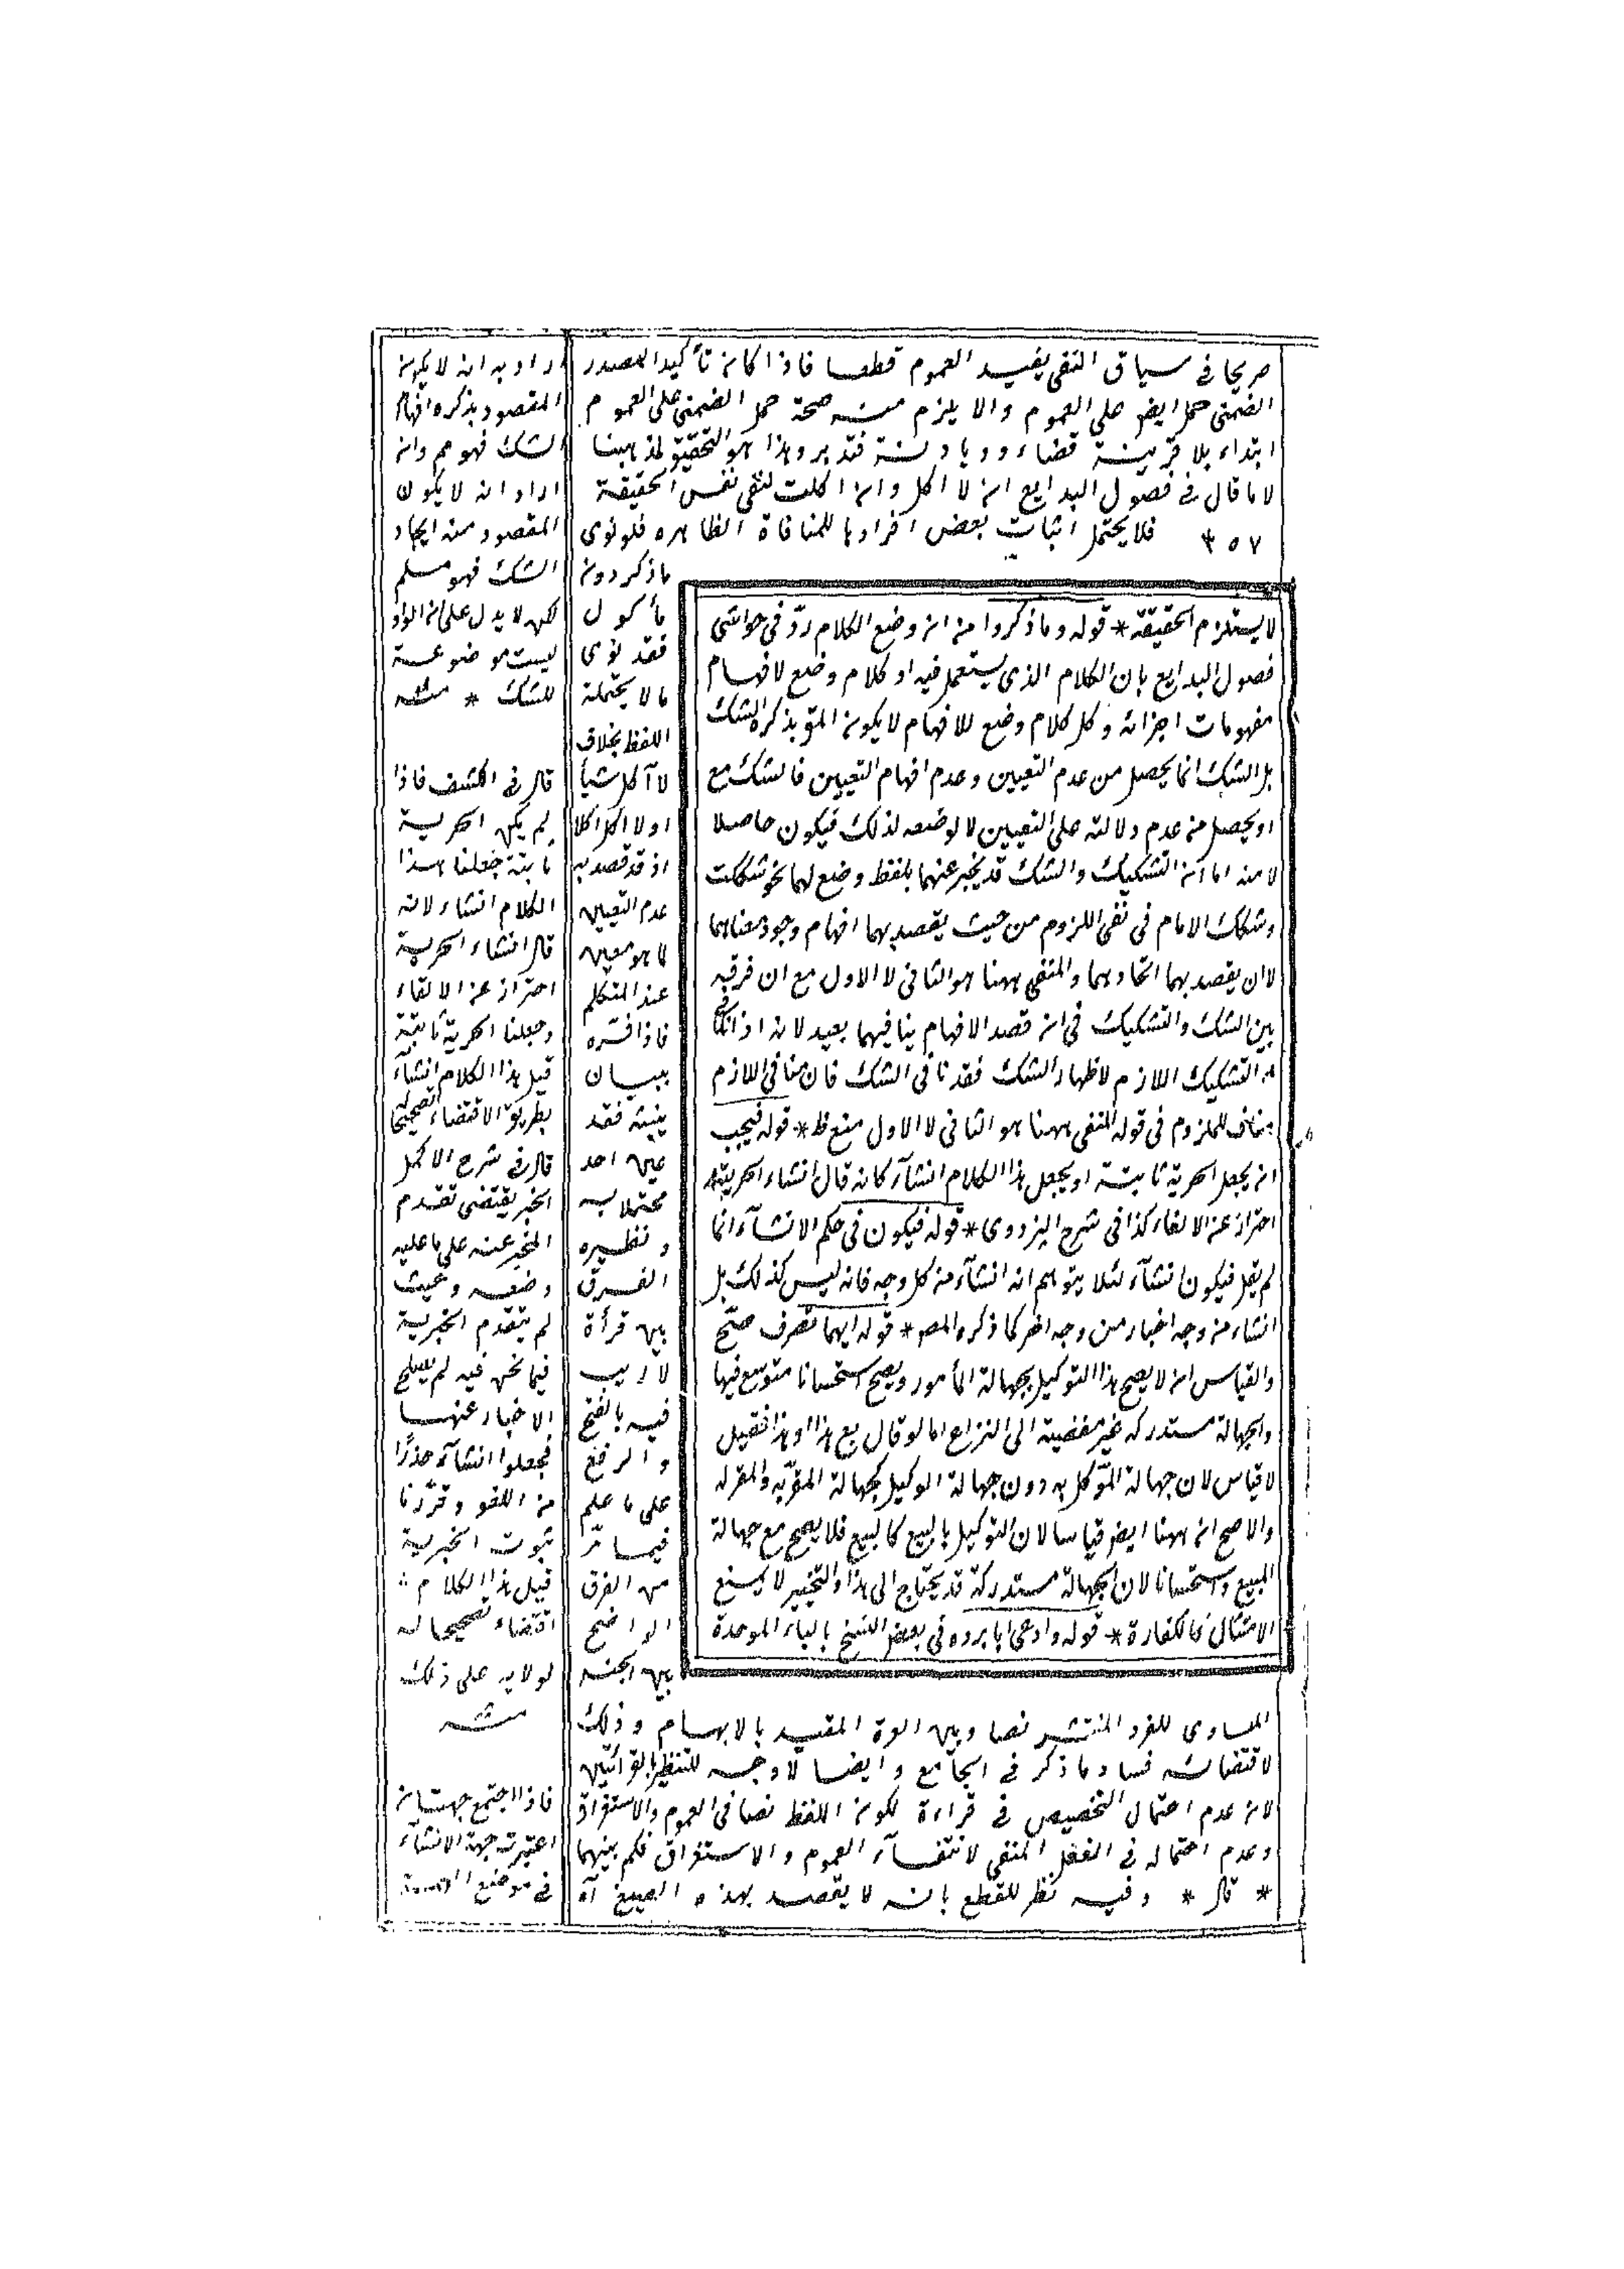 صريحا في سياق النفى يفيد العموم قطعا فاذا كان تأكيد المصدر
الضمنى حمل ايض على العموم والا يلزم منه صحة حمل الضمنى على العموم
ابتداء بلا قرينة قضاء وديانة فتدبر وهذا هو التحقيق لمذهبنا
لا ما قال في فصول البدايع ان لا اكل وان اكلت لنفى نفس الحقيقة
٣٥٧ فلا يحتمل اثبات بعض افرادها للمنافاة الظاهره فلو نوى
مأكول دون
مأكول
فقد نوى
ما لا يحتمله
اللفظ بخلاف
لا آكل شيأ
او لا اكل اكلا
اذ قد قصد به
عدم التعيين
لما هو معين
عند المتكلم
فاذا فسّره
ببيان
نيته فقد
عين احد
محتملاته
ونظيره
الفرق
بين قرأة
لا ريب
فيه بالفتح
والرفع
على ما علم
فيما مرّ
من الفرق
الواضح
بين الجنس
المساوى للفرد المنتشر نصا وبين الوحدة المقيد بالابهام وذلك
لاقتضائه فساد ما ذكر في الجامع وايضا لا وجه للتنظير بالقرائتين
لان عدم احتمال التخصيص في قراءة لكون اللفظ نصا في العموم والاستغراق
وعدم احتماله في الفعل المنفى لانتفآء العموم والاستغراق فكم بينهما
* قال * وفيه نظر للقطع بانه لا يقصد بهذه الصيغ آه
لا يستلزم الحقيقة * قوله وما ذكروا من ان وضع الكلام ردّ في حواشى
فصول البدايع بان الكلام الذى يستعمل فيه او كلام وضع لافهام
مفهومات اجزائه وكل كلام وضع للافهام لا يكون المقص بذكره الشك
بل الشك انما يحصل من عدم التعيين وعدم افهام التعيين فالشك مع
او يحصل من عدم دلالته على التعيين لا لوضعه لذلك فيكون حاصلا
لا منه اما ان التشكيك والشك قد يخبر عنهما بلفظ وضع لهما نحو شككت
وشكك الامام في نفى اللزوم من حيث يقصد بهما افهام وجود معناهما
لا ان يقصد بهما اتحادهما والمنفى ههنا هو الثانى لا الاول مع ان فرقه
بين الشك والتشكيك في ان قصد الافهام ينافيهما بعيد لانه اذا نافى
التشكيك اللازم لاظهار الشك فقد نافى الشك فان منافى اللازم
مناف للملزوم في قوله المنفى ههنا هو الثانى لا الاول منع ظ * قوله فيجب
ان يجعل الحرية ثابتة او يجعل هذا الكلام انشآء كانه قال انشاء الحرية
احترازا عن الالغاء كذا في شرح البزدوى * قوله فيكون في حكم الانشآء انما
لم يقل فيكون انشآء لئلا يتوهم انه انشآء من كل وجه فانه ليس كذلك بل
انشاء من وجه اخبار من وجه اخر كما ذكره المص * قوله ايهما تصرف صحّ
والقياس ان لا يصح هذا التوكيل بجهالة المأمور ويصح استحسانا متوسع فيها
والجهالة مستدركه غير مفضية الى النزاع اما لو قال بع هذا او هذا فقيل
لا قياس لان جهالة الموكل به دون جهالة الوكيل كجهالة المقرّ به والمقر له
والاصح ان ههنا ايض قياسا لان التوكيل بالبيع كالبيع فلا يصح مع جهالة
المبيع واستحسانا لان الجهالة مستدركة قد يحتاج الى هذا والتخيير لا يمنع
الامتثال كالكفارة * قوله وادعى ابا بروه في بعض النسخ بالباء الموحدة
اراد به انه لا يكون
المقصود بذكره افهام
الشك فهو مم وان
اراد انه لا يكون
المقصود منه ايجاد
الشك فهو مسلم
لكن لا يدل على ان او
ليست موضوعة
للشك * منه
قال في الكشف فاذا
لم يكن الحرية
ثابتة جعلنا هذا
الكلام انشاء لانه
قال انشاء الحرية
احترازا عن الالغاء
وجعلنا الحرية ثابتة
قبل هذا الكلام انشآء
بطريق الاقتضاء تصحيحا له
قال في شرح الاكمل
الخبر يقتضى تقدم
المخبر عنه على ما عليه
وضعه وحيث
لم يتقدم الخبرية
فيما نحن فيه لم يصلح
الاخبار عنها
فجعلوا انشآء حذرًا
من اللغو وقرّرنا
ثبوت الخبرية
قبل هذا الكلام
اقتضاء تصحيحا له
لولايه على ذلك
منه
فاذا اجتمع جهتان
اعتبرت جهة الانشآء
في موضع